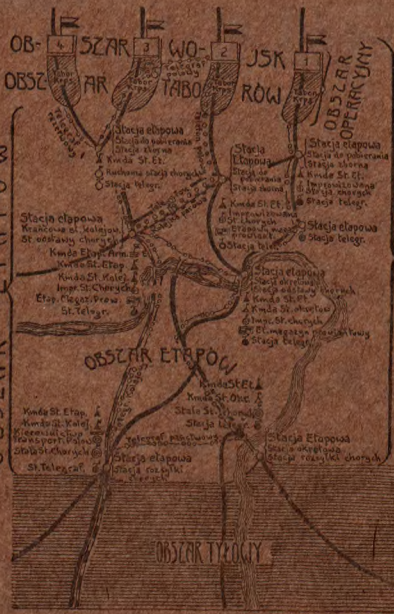 4 3 2 1
OB- SZAR WO- JSK
OBSZ AR TABO RÓW
OBSZAR OPERACYJNY
Stacja etapowa
Stacja do pobierania
Stacja zborna
Kmda St. Et.
Ruchoma stacja chorych
Stacja telegr.
Stacja Etapowa
Stacja do pobierania
Stacja zborna
Kmda St. Et.
Improwizowana
St. chorych
Stacja telegr.
Stacja etapowa
Stacja do pobierania
Stacja zborna
Kmda St. Et.
Improwizowana
Stacja chorych
Stacja telegr.
Stacja etapowa
Stacja telegr.
Stacja etapowa
Krańcowa st. kolejow.
St. odstawy chorych
Kmda Etap. Arm.
Kmda St. Etap.
Kmda St. Kolej.
Impr. St. Chorych
Etap. Magaz. Prow.
St. Telegr.
Stacja etapowa
Stacja okrętowa
Stacja odstawy chorych
Kmda St. Et.
Kmda St. okrętow.
Impr. St. chorych
Et. magazyn prowiantowy
Stacja telegr.
OBSZAR ETAPÓW
OBSZAR ETAPÓW
Kmda St. Etap.
Kmda St. Kolej.
Kierownictwo
Transport. Polow.
Stała St. Chorych
St. Telegraf.
Stacja etapowa
Stacja rozsyłki
chorych
Kmda St. Et.
Kmda St. Okr.
Stała St. Chorych
Stacja telegr.
telegraf państwowy
Stacja Etapowa
Stacja okrętowa
Stacja rozsyłki chorych
OBSZAR TYŁOWY